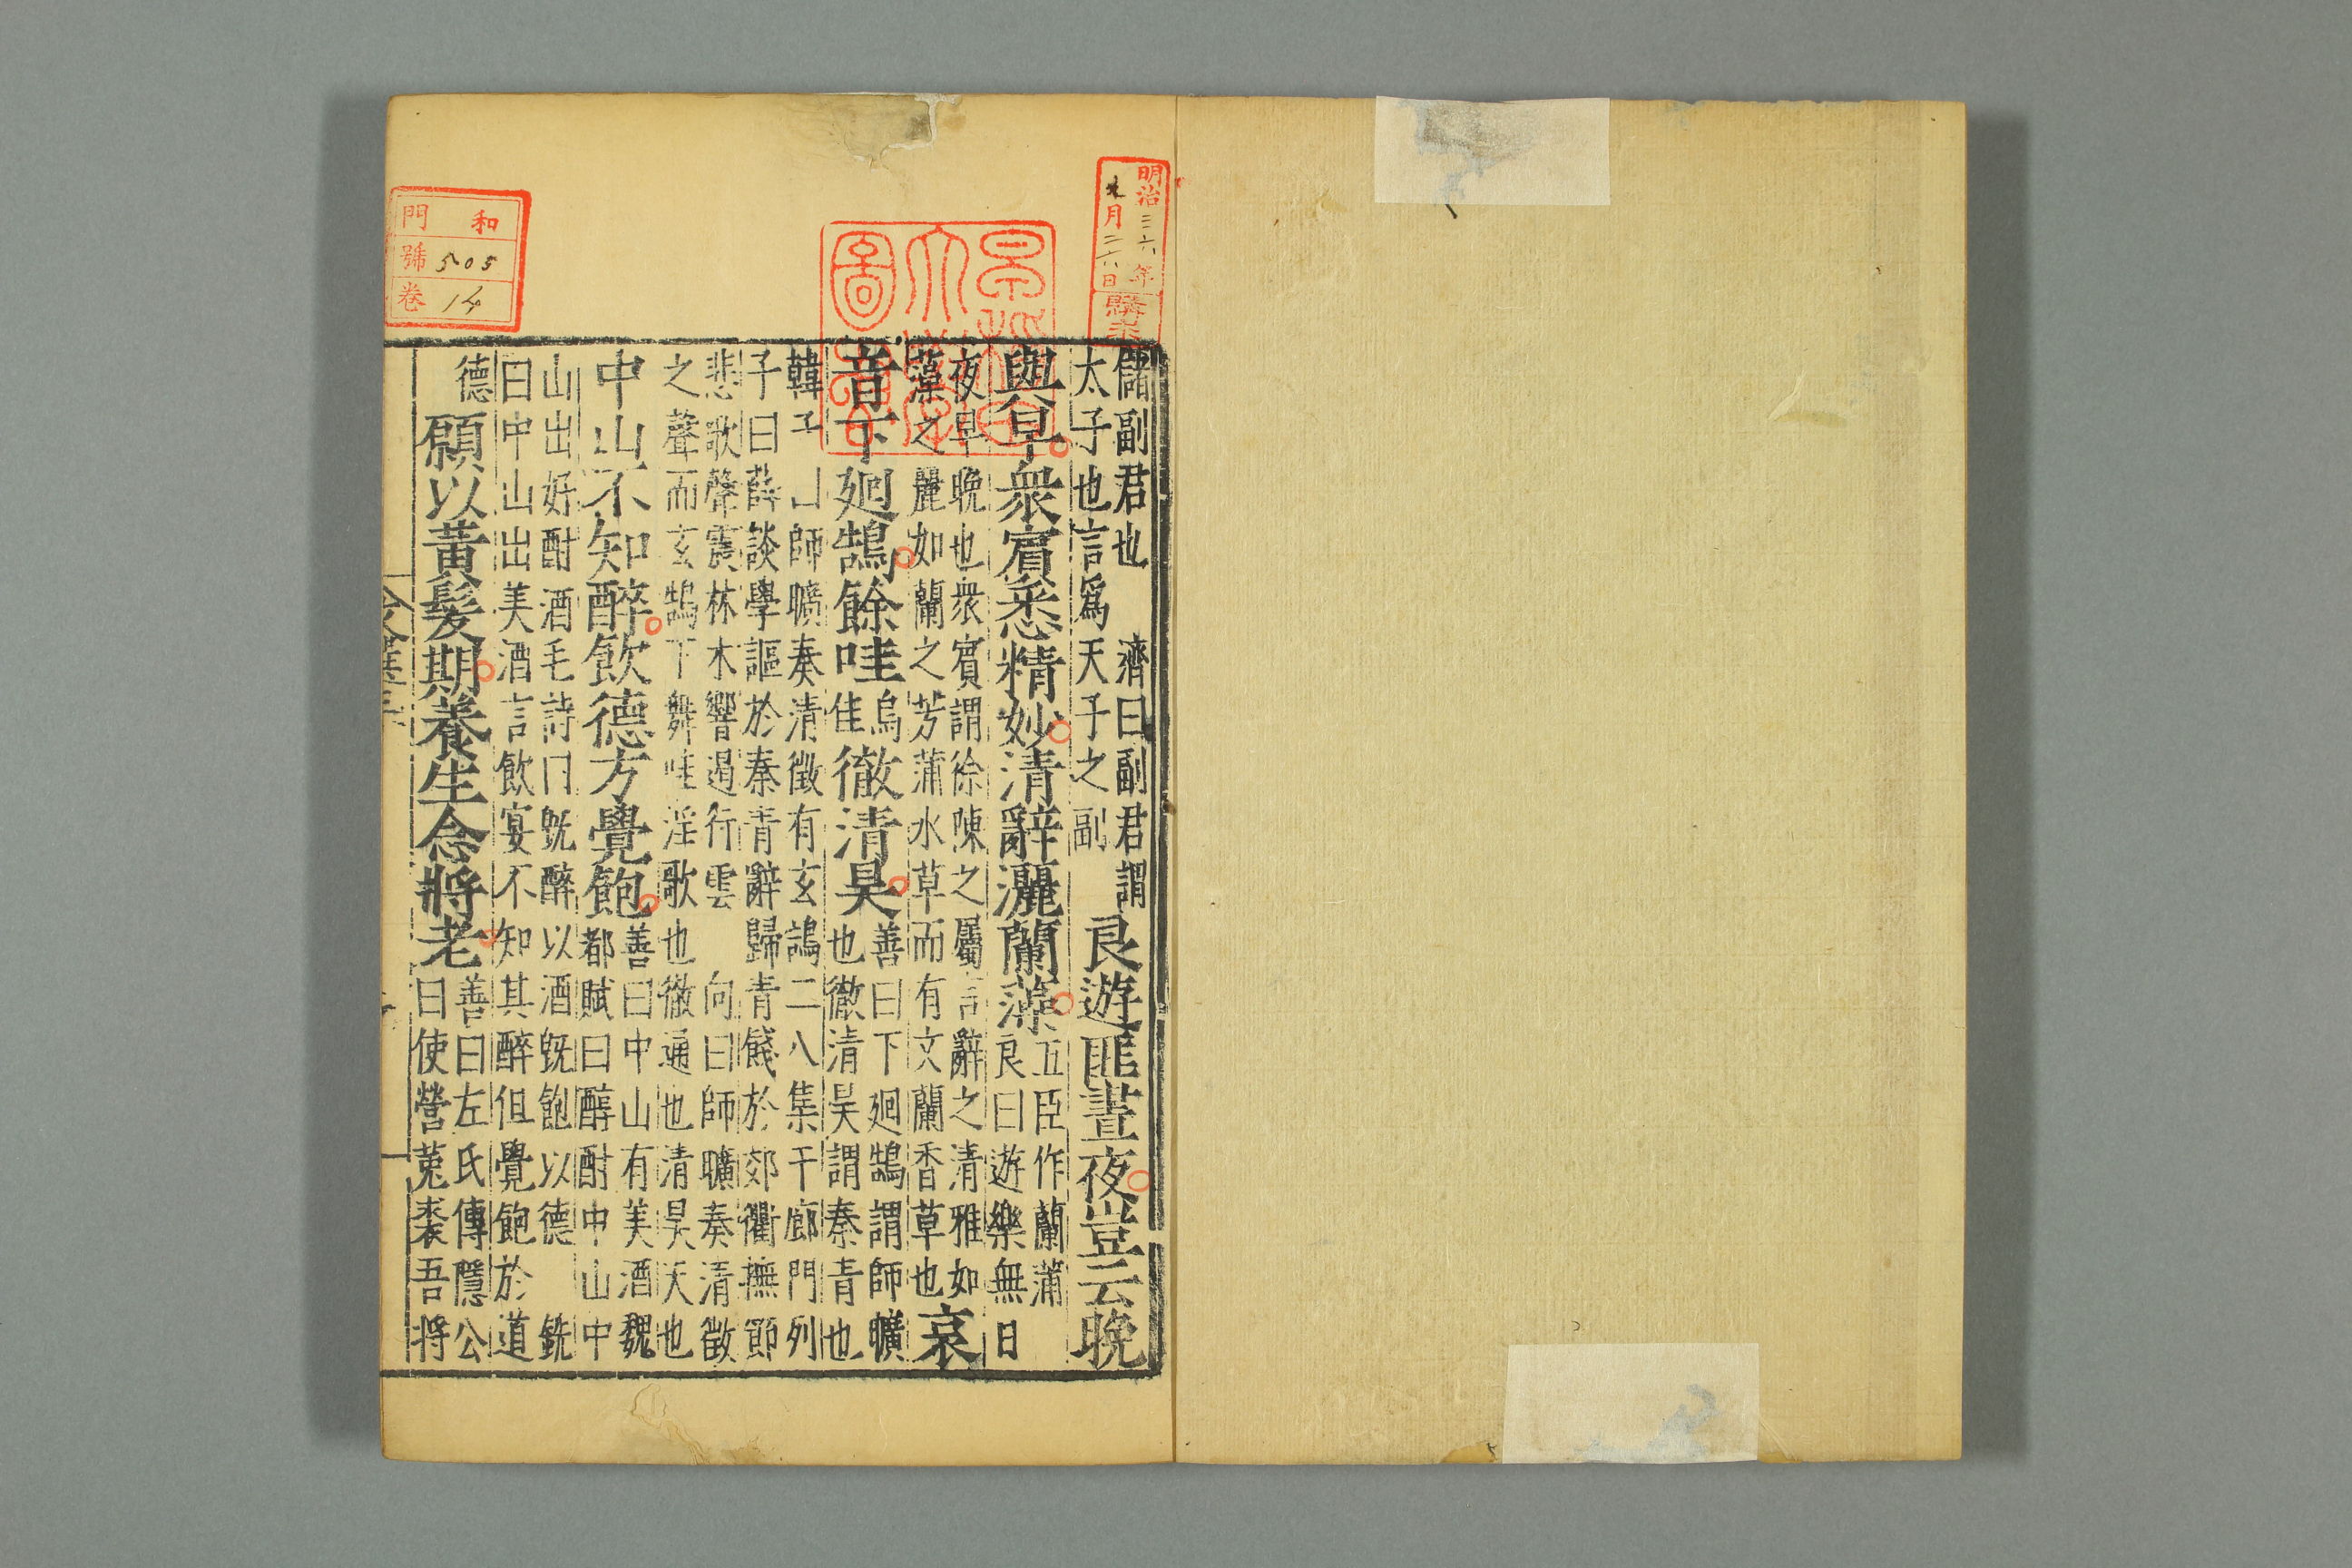 明治三六年
九月二六日
購求
京都帝國
大學
圖書之印
儲副君也　濟曰副君謂
太子也言爲天子之副
良遊匪晝夜豈云晚
與早衆賓悉精妙清辭灑蘭藻
五臣作蘭蒲
良曰遊樂無日
夜早晚也衆賓謂徐陳之屬言辭之清雅如
藻之麗如蘭之芳蒲水草而有文蘭香草也
哀
音下廻鵠餘哇
烏
佳
徹清昊
善曰下廻鵠謂師曠
也徹清昊謂秦青也
韓子曰師曠奏清徵有玄鵠二八集于廊門列
子曰薛談學謳於秦青辭歸青餞於郊衢撫節
悲歌聲震林木響遏行雲　向曰師曠奏清徵
之聲而玄鵠下舞哇淫歌也徹通也清昊天也
中山不知醉飲德方覺飽
善曰中山有美酒魏
都賦曰醇酎中山中
山出好酎酒毛詩曰旣醉以酒旣飽以德　銑
曰中山出美酒言飲宴不知其醉但覺飽於道
德
願以黃髮期養生念將老
善曰左氏傳隱公
曰使營菟裘吾將
和門
505號
14卷